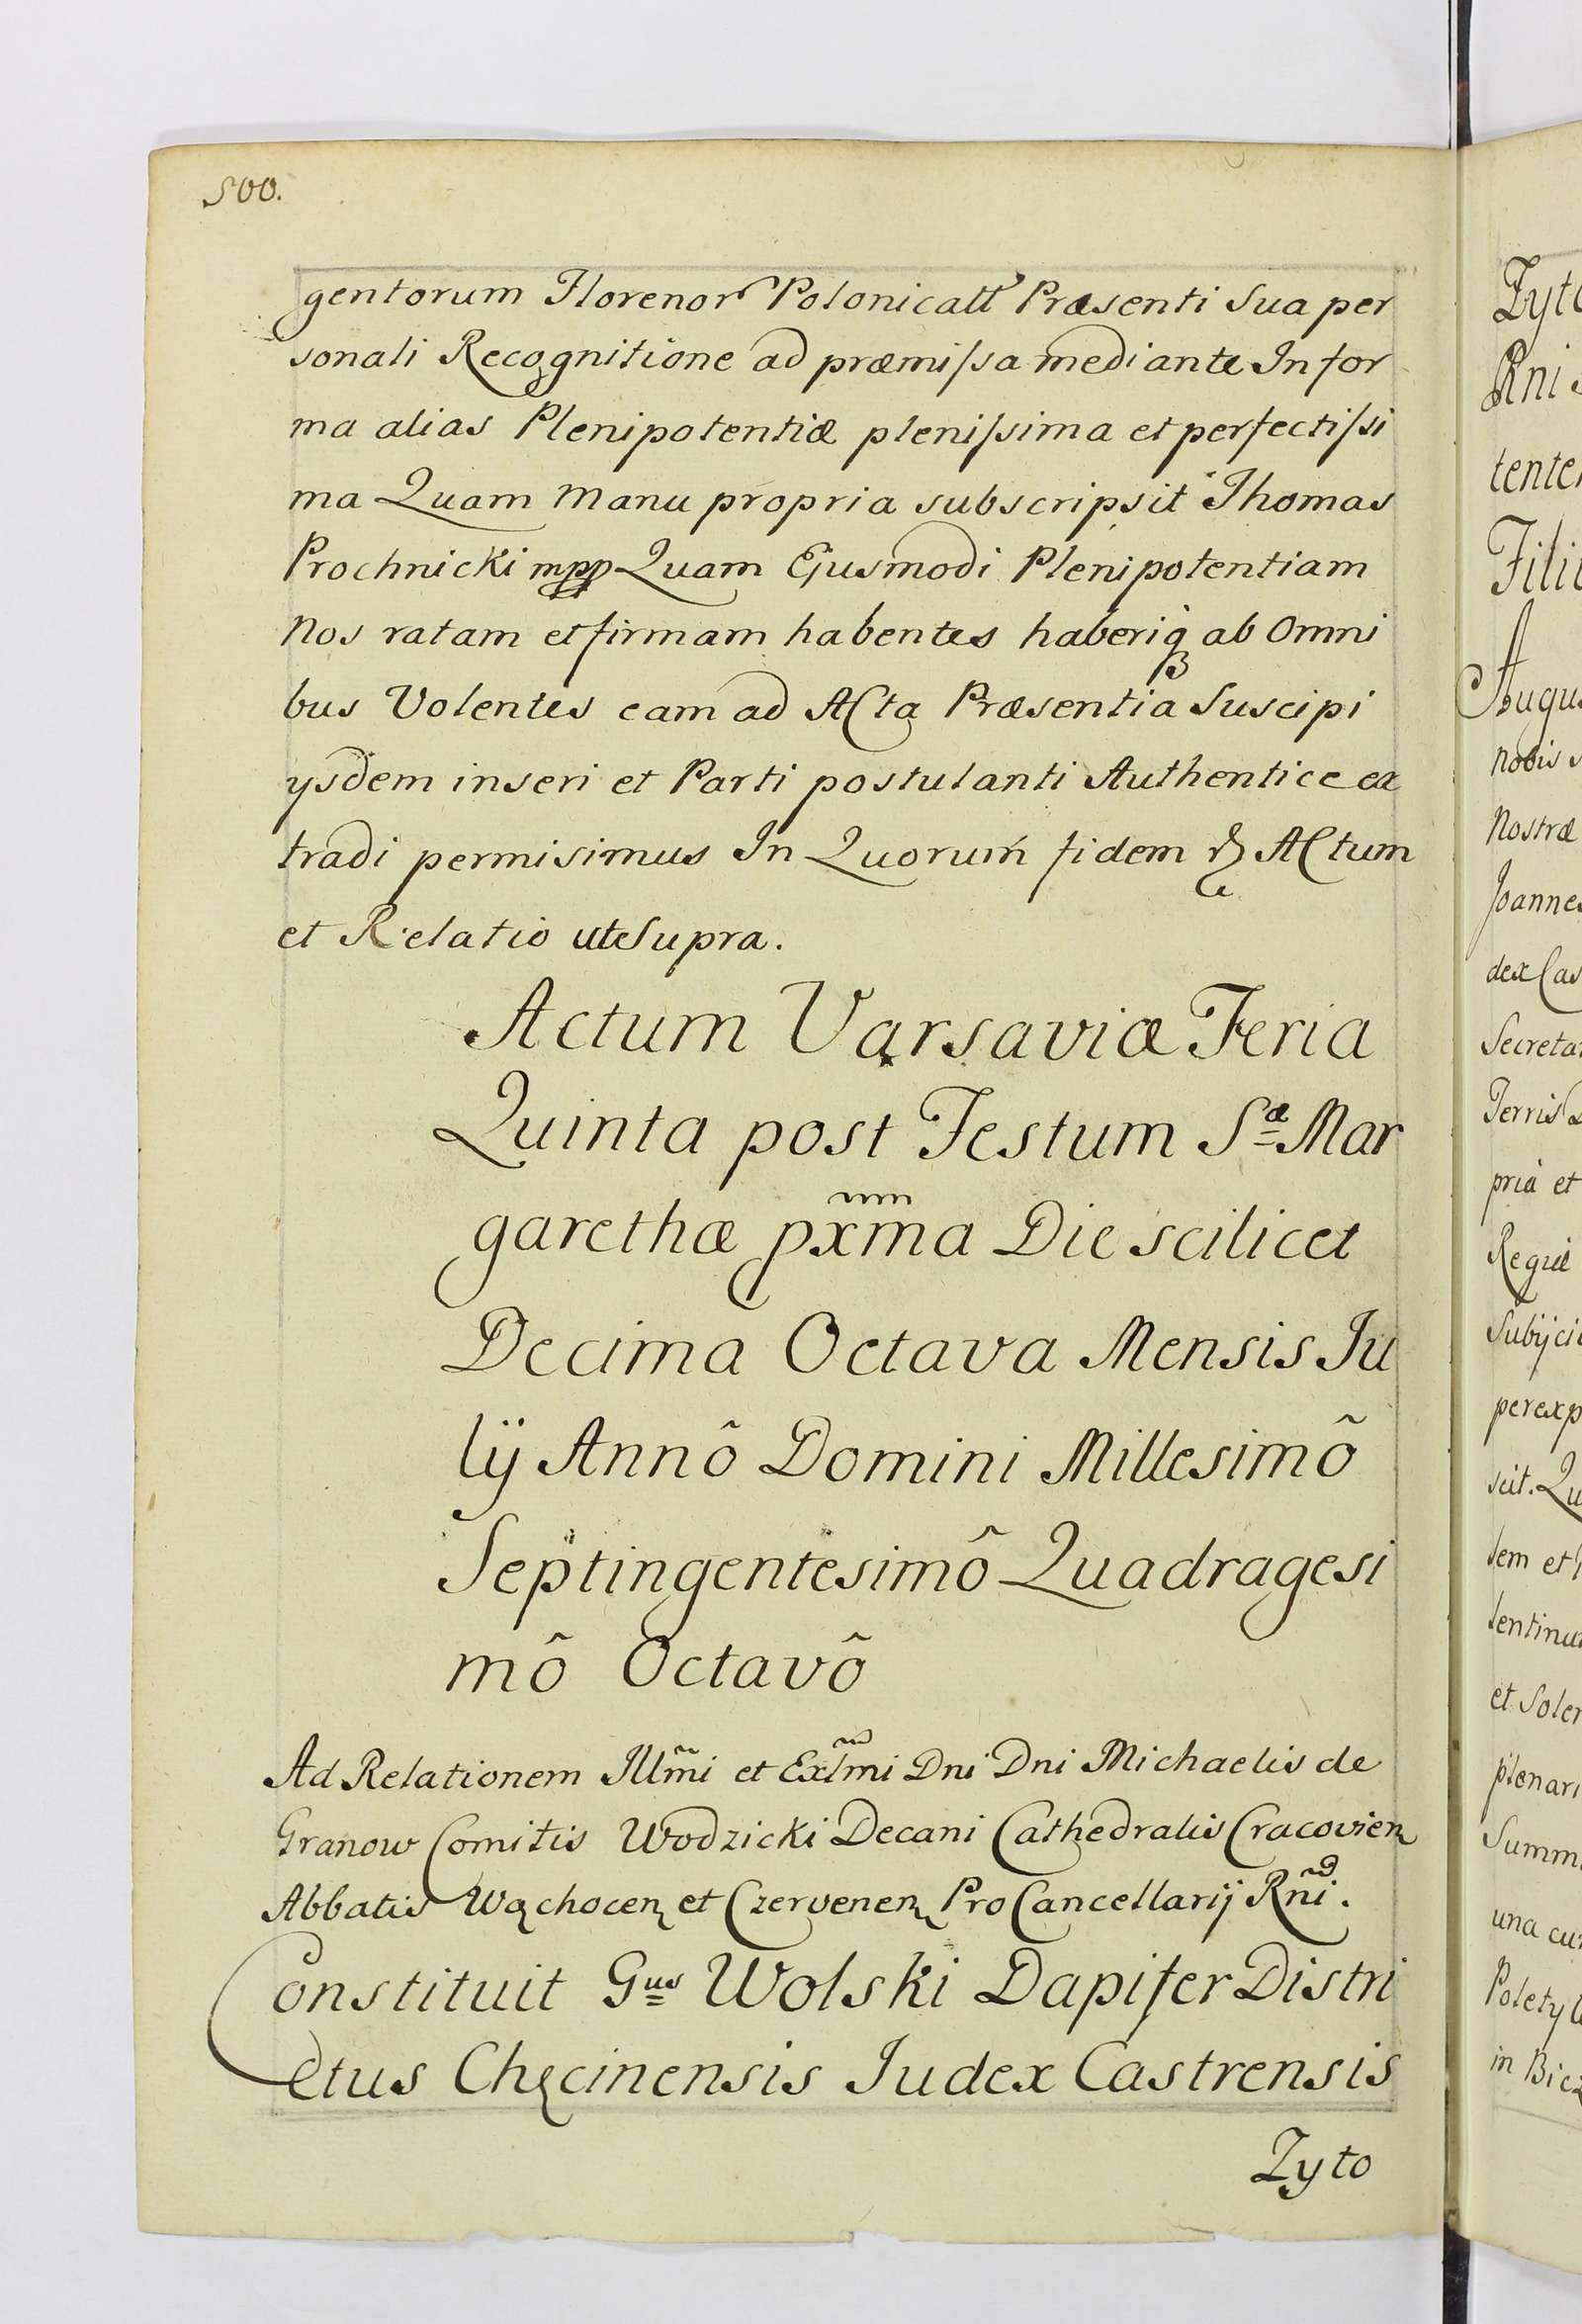 500.
gentorum Florenor Polonicall Præsenti Sua per
sonali Recognitione ad præmissa mediante In for
ma alias Plenipotentiæ plenissima et perfectissi
ma Quam manu propria subscripsit Thomas
Prochnicki mpp Quam Ejusmodi Plenipotentiam
Nos ratam et firmam habentes haberiq ab Omni
bus Volentes eam ad Acta Præsentia Suscipi
ysdem inseri et Parti postulanti Authentice ex
tradi permisimus In Quorum fidem Actum
et Relatio ut Supra.
Actum Varsaviæ Feria
Quinta post Festum Sæ Mar
garethæ pxma Die scilicet
Decima Octava Mensis Ju
lij Annô Domini Millesimô
Septingentesimô Quadragesi
mô Octavô
Ad Relationem Illmi et Exlmi Dni Dni Michaelis de
Granow Comitis Wodzicki Decani Cathedralis Cracovien
Abbatis Wąchocen et Czerwenen ProCancellarij Rni.
Constituit Gus Wolski Dapifer Distri
ctus Chęcinensis Judex Castrensis
Zyto
Rni
Filii
Augus
nobis
Nostræ
Joannes
dex Cas
Secretar
Terris
pria et
Regiæ
Subijci
perexp
scit. Qu
dem et
lentinum
et Solen
plenari
Summ
una cum
in Biec